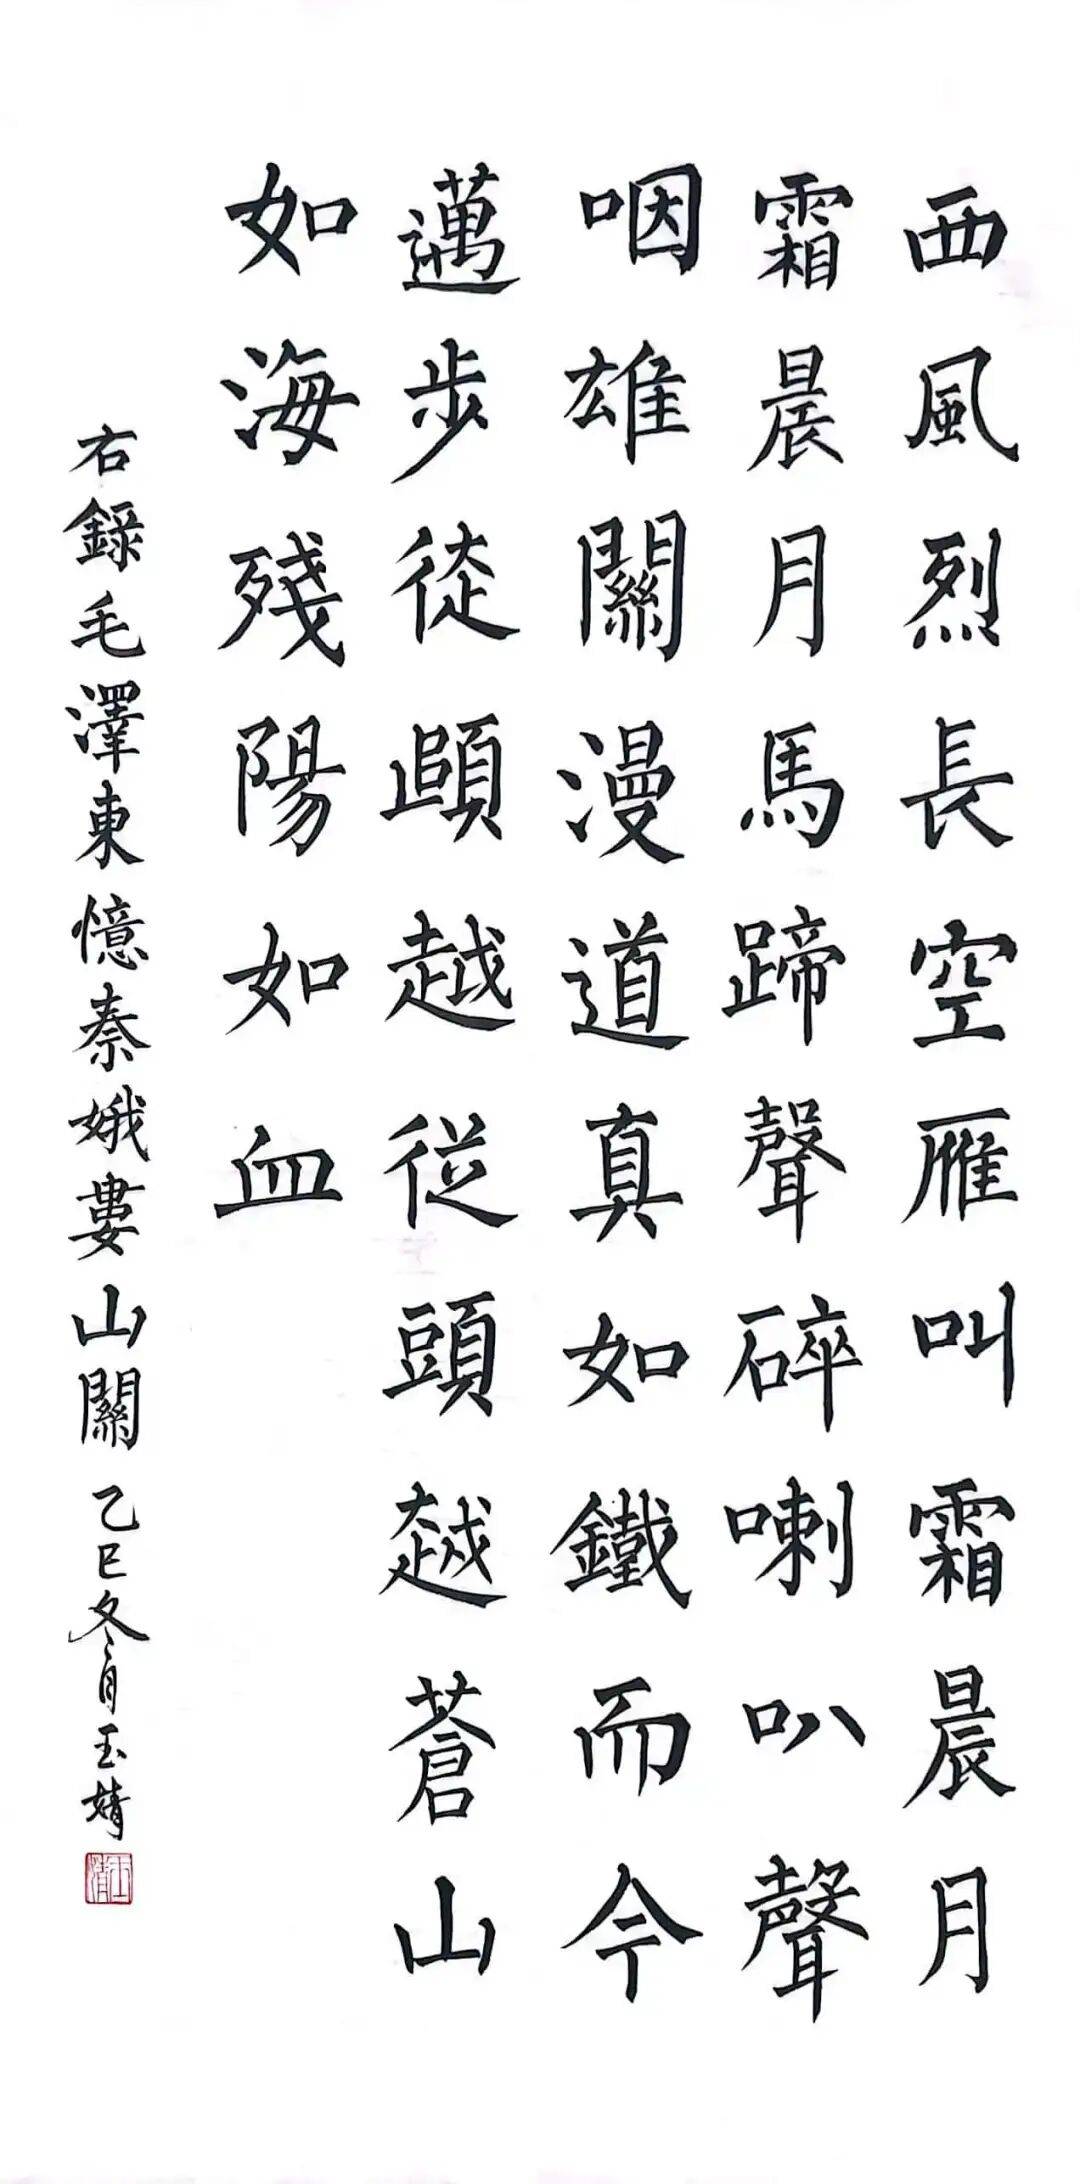 西風烈長空雁叫霜晨月
霜晨月馬蹄聲碎喇叭聲
咽雄關漫道真如鐵而今
邁步從頭越從頭越蒼山
如海殘陽如血
右錄毛澤東憶秦娥婁山關 乙巳冬月玉婧